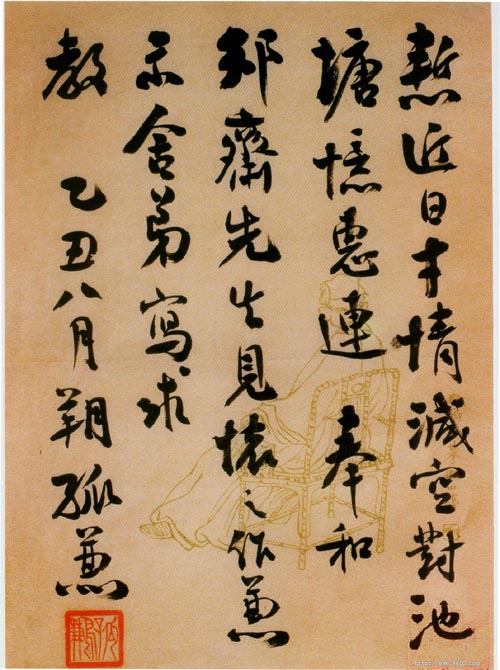 慙近日才情減空對池
塘憶惠連 奉和
齋先生見懷之作兼
示舍弟寫求
教 乙丑八月朔孤兼